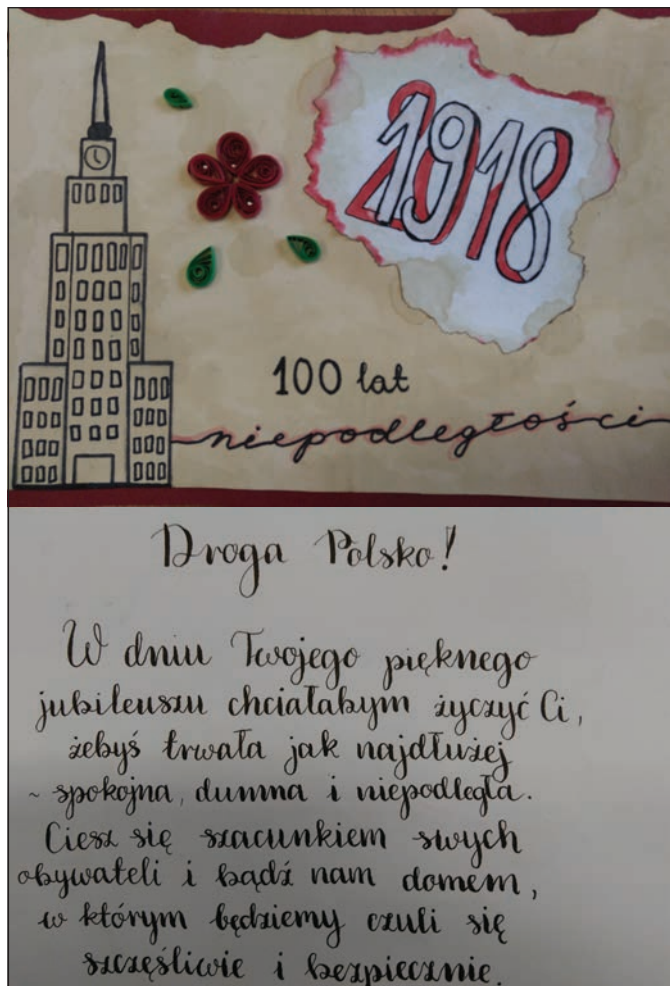 1918
100 lat
niepodległości
Droga Polsko!
W dniu Twojego pięknego
jubileuszu chciałabym życzyć Ci,
żebyś trwała jak najdłużej
~ spokojna, dumna i niepodległa.
Ciesz się szacunkiem swych
obywateli i bądź nam domem,
w którym będziemy czuli się
szczęśliwie i bezpiecznie.